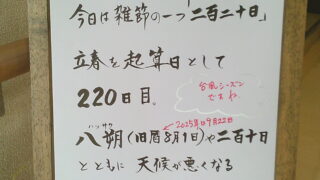 今日は雑節の一つ「二百二十日」
立春を起算日として
220日目。
台風シーズン
ですね
ハッサク
2025年は9月22日
八朔(旧暦8月1日)や二百十日
とともに 天候が悪くなる